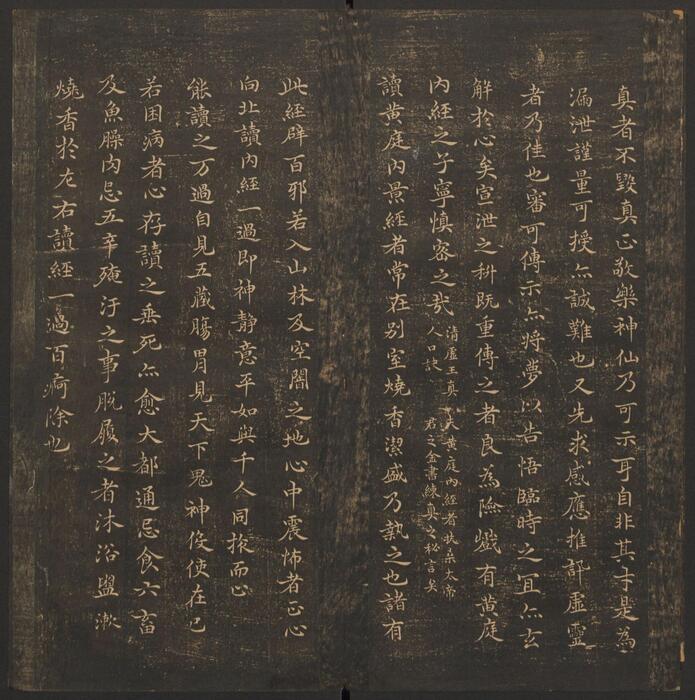 真者不毀真正敬樂神仙乃可示耳自非其才是為
漏泄謹量可授亦誠難也又先求感應推訊虛靈
者乃佳也審可傳示亦將夢以告悟臨時之宜亦玄
解於心矣宣泄之科既重傳之者良為險巇有黃庭
內經之子寧慎密之哉
清虛王真
人口訣
夫黃庭內經者扶桑太帝
君之金書鍊真之秘言矣
讀黃庭內景經者常在別室燒香潔盛乃執之也諸有
此經辟百邪若入山林及空闇之地心中震怖者正心
向北讀內經一過即神靜意平如與千人同旅而心
能讀之万過自見五藏腸胃見天下鬼神役使在己
若困病者心存讀之垂死亦愈大都通忌食六畜
及魚臊肉忌五辛殗汙之事脫履之者沐浴盥漱
燒香於左右讀經一過百痾除也